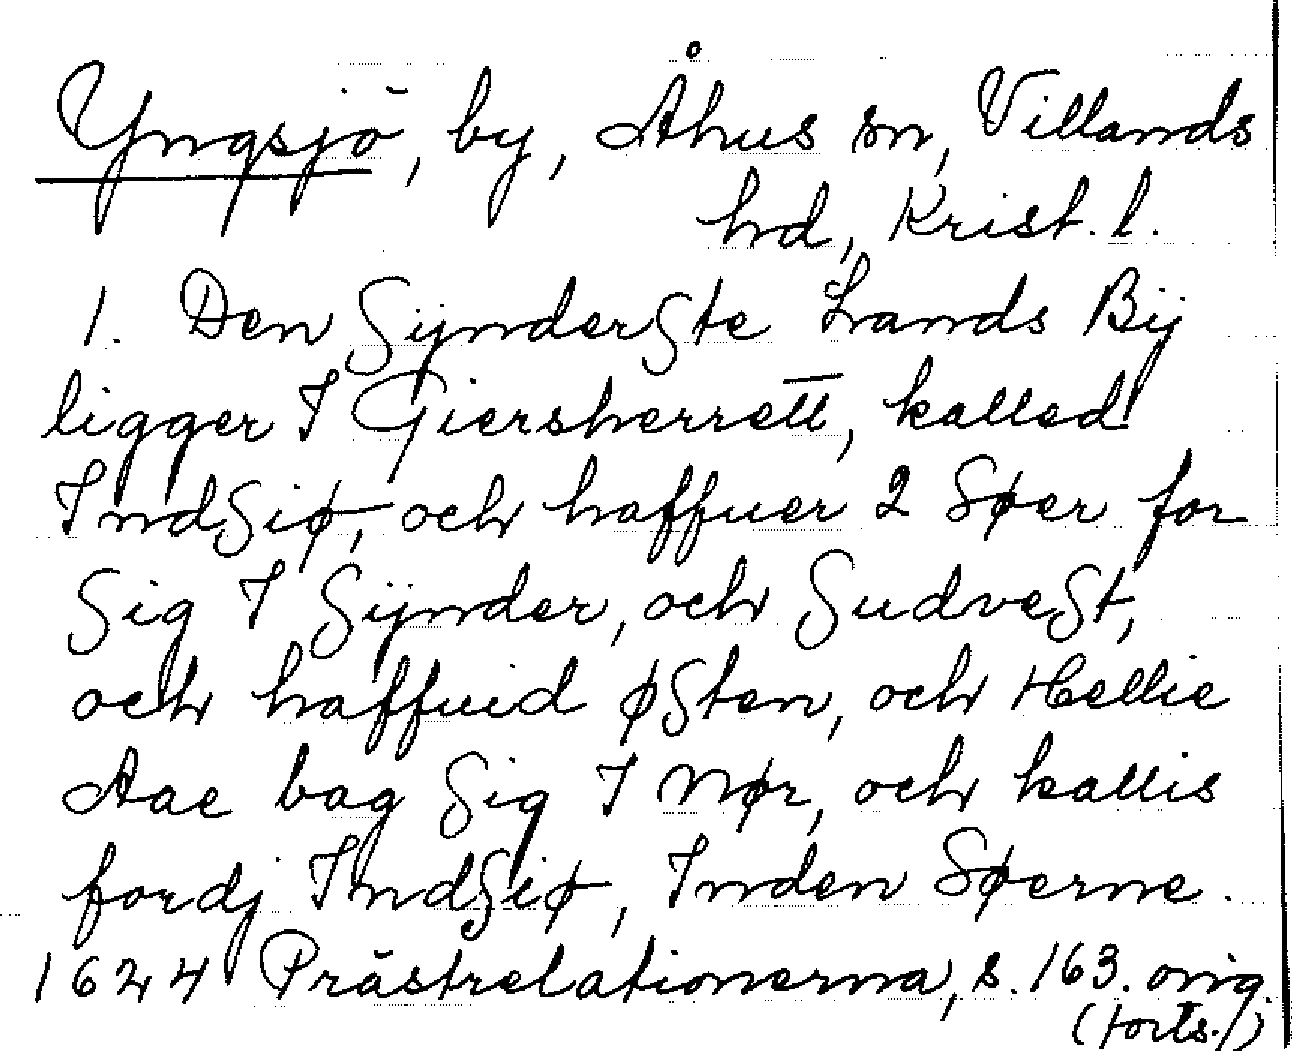 Yngsjö, by, Åhus sn, Villands
hd, Krist. l.
1. Den Synderste Lands Bÿ
ligger I Giersherrett, kalled
Indsiø, och haffuer 2 Søer for
Sig I Sÿnder, och Sudvest,
och haffuid østen, och Hellie
Aae bag Sig I Nør, och kallis
fordj Indsiø, Inden Søerne.
1624 Prästrelationerna, s. 163. orig.
(forts./)